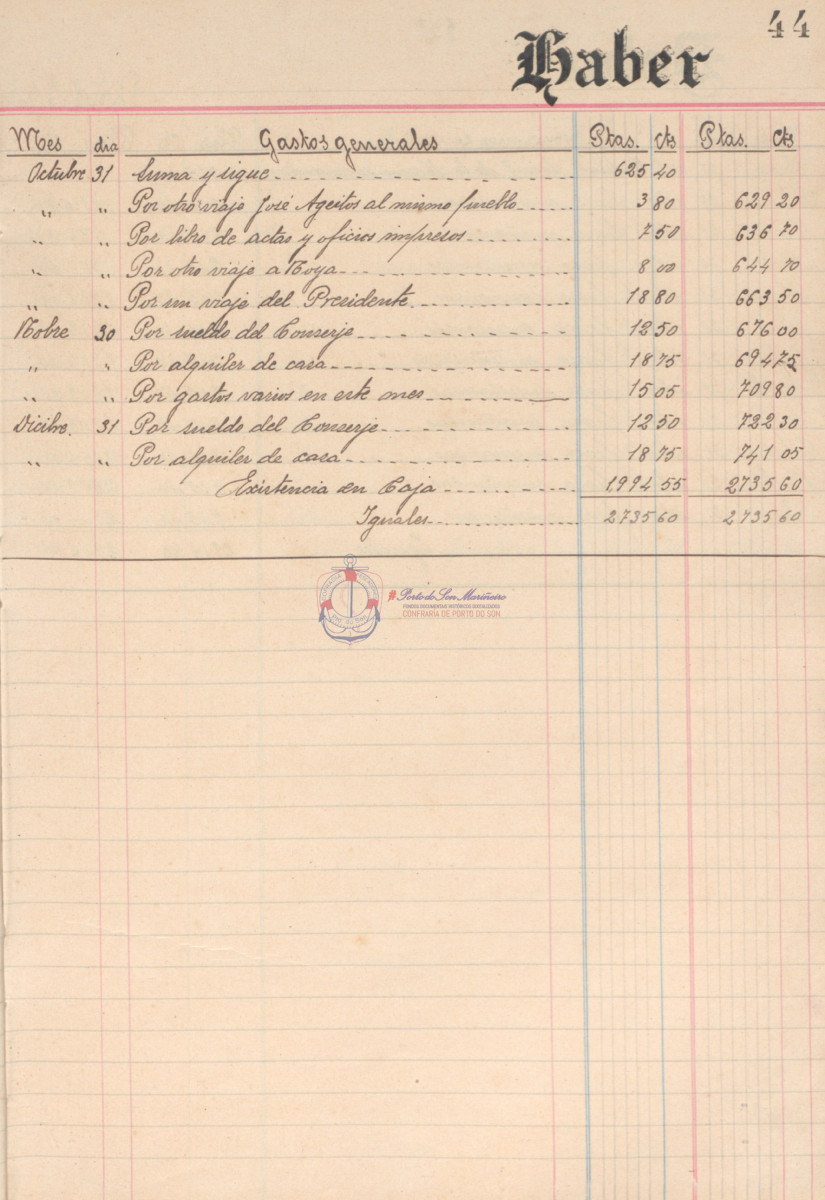 44
Haber
Mes dia Gastos generales Ptas. Cts Ptas. Cts
Octubre 31 Suma y sigue 625 40
" " Por otro viaje José Ageitos al mismo pueblo 3 80 629 20
" " Por libro de actas y oficios impresos 7 50 636 70
" " Por otro viaje a Noya 8 00 644 70
" " Por un viaje del Presidente 18 80 663 50
Nobre 30 Por sueldo del Conserje 12 50 676 00
" " Por alquiler de casa 18 75 694 75
" " Por gastos varios en este mes 15 05 709 80
Dicibre. 31 Por sueldo del Conserje 12 50 722 30
" " Por alquiler de casa 18 75 741 05
Existencia en Caja 1994 55 2735 60
Iguales 2735 60 2735 60
Porto do Son Mariñeiro
FONDOS DOCUMENTAIS HISTÓRICOS DIXITALIZADOS
CONFRARÍA DE PORTO DO SON